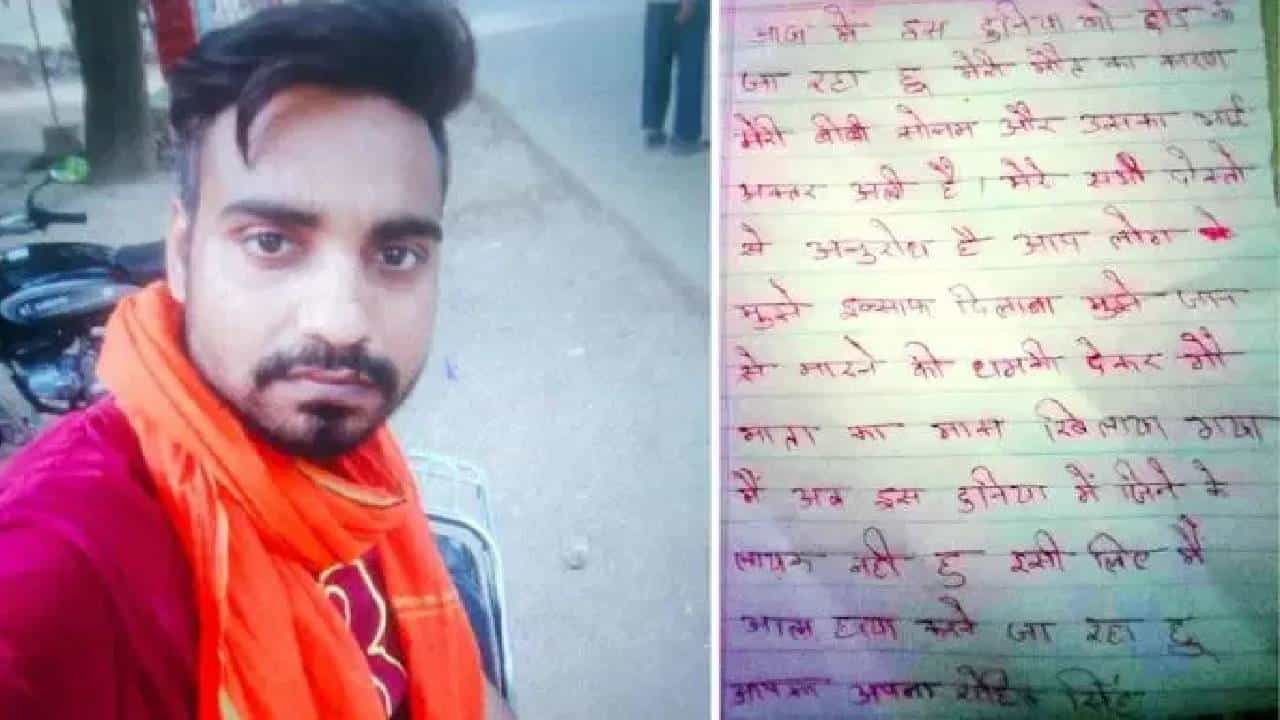 आज मैं इस दुनिया को छोड़ के
जा रहा हु मेरी मौत का कारण
मेरी बीबी सोनम और उसका भाई
अक्तर अली है। मेरे सभी दोस्तो
से अनुरोध है आप लोग
मुझे इन्साफ दिलाना मुझे जान
से मारने की धमकी देकर गौ
माता का मास खिलाया गया
मैं अब इस दुनिया में जिने के
लायक नही हु इसी लिए मैं
आत्म हत्या करने जा रहा हु
आपका अपना रोहित सिंह